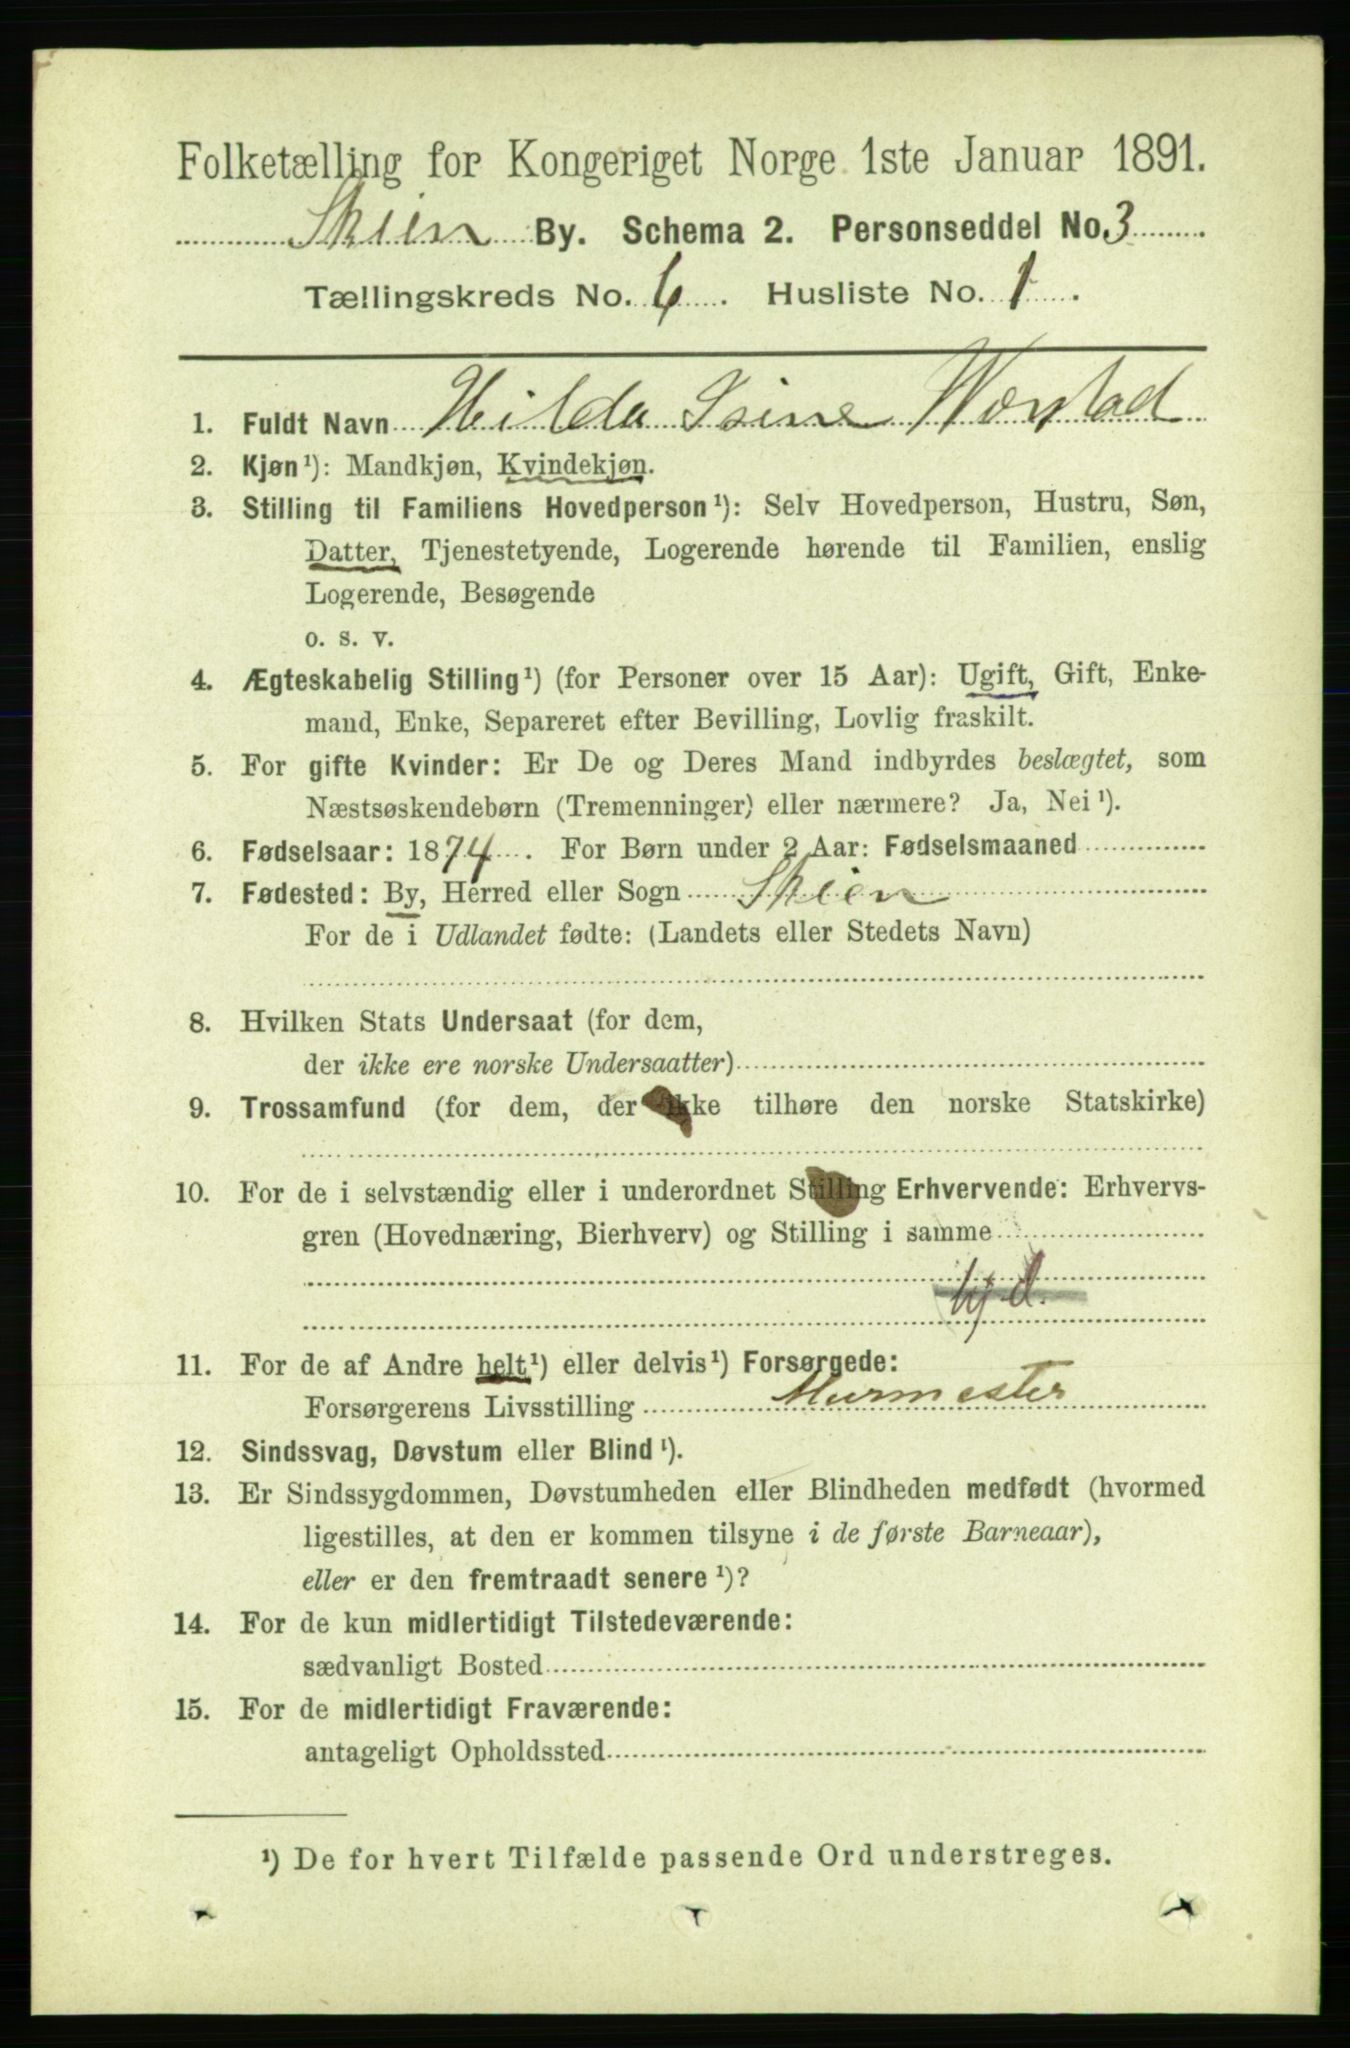 Folketælling for Kongeriget Norge 1ste Januar 1891.
Skien By. Schema 2. Personseddel No. 3
Tællingskreds No. 6. Husliste No. 1.
1. Fuldt Navn Hilda Isine
2. Kjøn¹): Mandkjøn, Kvindekjøn.
3. Stilling til Familiens Hovedperson¹): Selv Hovedperson, Hustru, Søn,
Datter, Tjenestetyende, Logerende hørende til Familien, enslig
Logerende, Besøgende
o. s. v.
4. Ægteskabelig Stilling¹) (for Personer over 15 Aar): Ugift, Gift, Enke-
mand, Enke, Separeret efter Bevilling, Lovlig fraskilt.
5. For gifte Kvinder: Er De og Deres Mand indbyrdes beslægtet, som
Næstsøskendebørn (Tremenninger) eller nærmere? Ja, Nei¹).
6. Fødselsaar: 1874. For Børn under 2 Aar: Fødselsmaaned
7. Fødested: By, Herred eller Sogn Skien
For de i Udlandet fødte: (Landets eller Stedets Navn)
8. Hvilken Stats Undersaat (for dem,
der ikke ere norske Undersaatter)
9. Trossamfund (for dem, der ikke tilhøre den norske Statskirke)
10. For de i selvstændig eller i underordnet Stilling Erhvervende: Erhvervs-
gren (Hovednæring, Bierhverv) og Stilling i samme
hj. d.
11. For de af Andre helt¹) eller delvis¹) Forsørgede:
Forsørgerens Livsstilling Murmester
12. Sindssvag, Døvstum eller Blind¹).
13. Er Sindssygdommen, Døvstumheden eller Blindheden medfødt (hvormed
ligestilles, at den er kommen tilsyne i de første Barneaar),
eller er den fremtraadt senere¹)?
14. For de kun midlertidigt Tilstedeværende:
sædvanligt Bosted
15. For de midlertidigt Fraværende:
antageligt Opholdssted
¹) De for hvert Tilfælde passende Ord understreges.